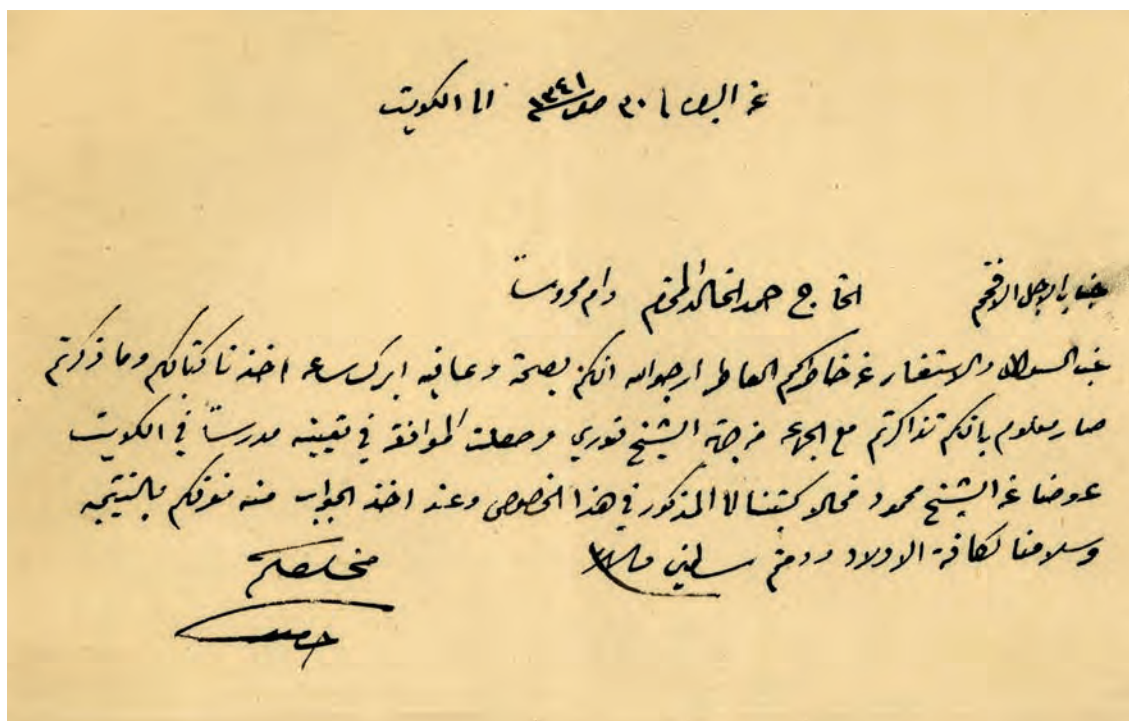 عن البصره ٣٠ صفر سنه ١٣٤١ الى الكويت
جناب الاجل الافخم الحاج حمد الخالد المحترم دام محروساً
غب السؤال والاستفسار عن خاطركم العاطر ارجو الله انكم بصحة وعافيه ابرك ساعه اخذنا كتابكم وما ذكرتم
صار معلوم بانكم تذاكرتم مع الجماعه من جهة الشيخ نوري وحصلت الموافقه في تعيينه مدرساً في الكويت
عوضا عن الشيخ محمود فحالا كتبنا الى المذكور في هذا الخصوص وعند اخذ الجواب منه نعرفكم بالنتيجه
وسلامنا لكافة الاولاد ودمتم سالمين
مخلصكم
حامد